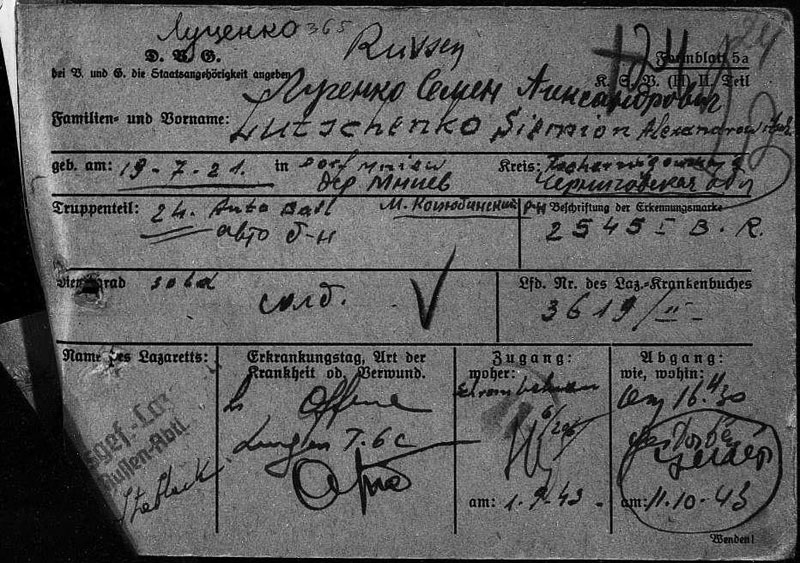 Луценко 365 Russen 24
D. V. G. Formblatt 5a
bei V. und G. die Staatsangehörigkeit angeben K. S. V. (II) II. Teil
Луценко Семен Александрович
Familien- und Vorname: Lutschenko Simion Alexandrowitsch
geb. am: 19-7-21. in Dorf Mniew Kreis:
дер Мниев Черниговская обл
Truppenteil: 24. Auto Batl М. Коцюбинский Beschriftung der Erkennungsmarke
авто б-н 2545 I B. R.
Dienstgrad sold Lfd. Nr. des Laz.-Krankenbuches
солд. 3619/II
Name des Lazaretts: Erkrankungstag, Art der Krankheit od. Verwund. Zugang: woher: Abgang: wie, wohin:
Offene 16.30
Lungen T.b.c gestorben
Russen-Abtl.
Stablack am: 1.9-43 am: 11.10-43
Wenden!